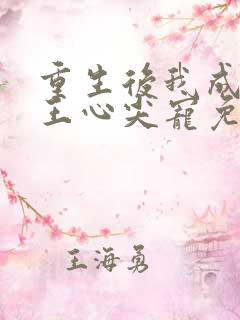 重生後我成
王心尖寵免
王海勇